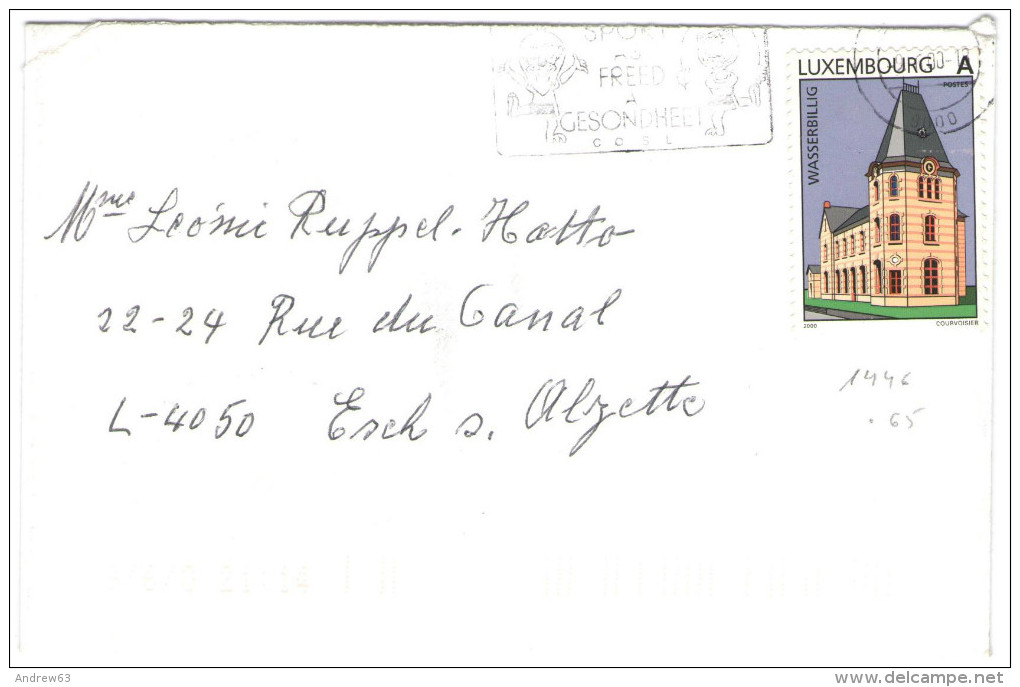 SPORT
FREED
GESONDHEET
C O S L
LUXEMBOURG A
POSTES
WASSERBILLIG
2000
COURVOISIER
Mme Léonie Ruppel-Hatto
22-24 Rue du Canal
L-4050 Esch s. Alzette
1446
.65
Andrew63
www.delcampe.net